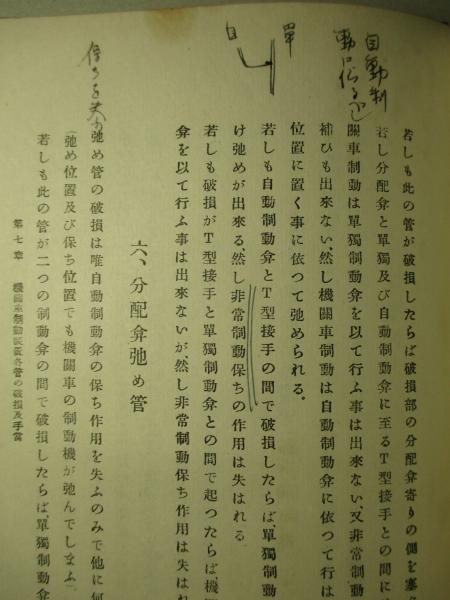 自動制
單
自
若しも此の管が破損したらば破損部の分配弁寄りの側を塞
若し分配弁と單獨及び自動制動弁に至るT型接手との間に
關車制動は單獨制動弁を以て行ふ事は出來ない、又非常制動
補ひも出來ない、然し機關車制動は自動制動弁に依つて行は
位置に置く事に依つて弛められる。
若しも自動制動弁とT型接手の間で破損したらば、單獨制動
け弛めが出來る、然し非常制動保ちの作用は失はれる
若しも破損がT型接手と單獨制動弁との間で起つたらば機
弁を以て行ふ事は出來ないが、然し非常制動保ち作用は失は
六、分配弁弛め管
弛め管の破損は唯自動制動弁の保ち作用を失ふのみで他に何
(弛め位置及び保ち位置でも機關車の制動機が弛んでしまふ
若しも此の管が二つの制動弁の間で破損したらば、單獨制動弁
第七章 機關車制動裝置各管の破損及手當